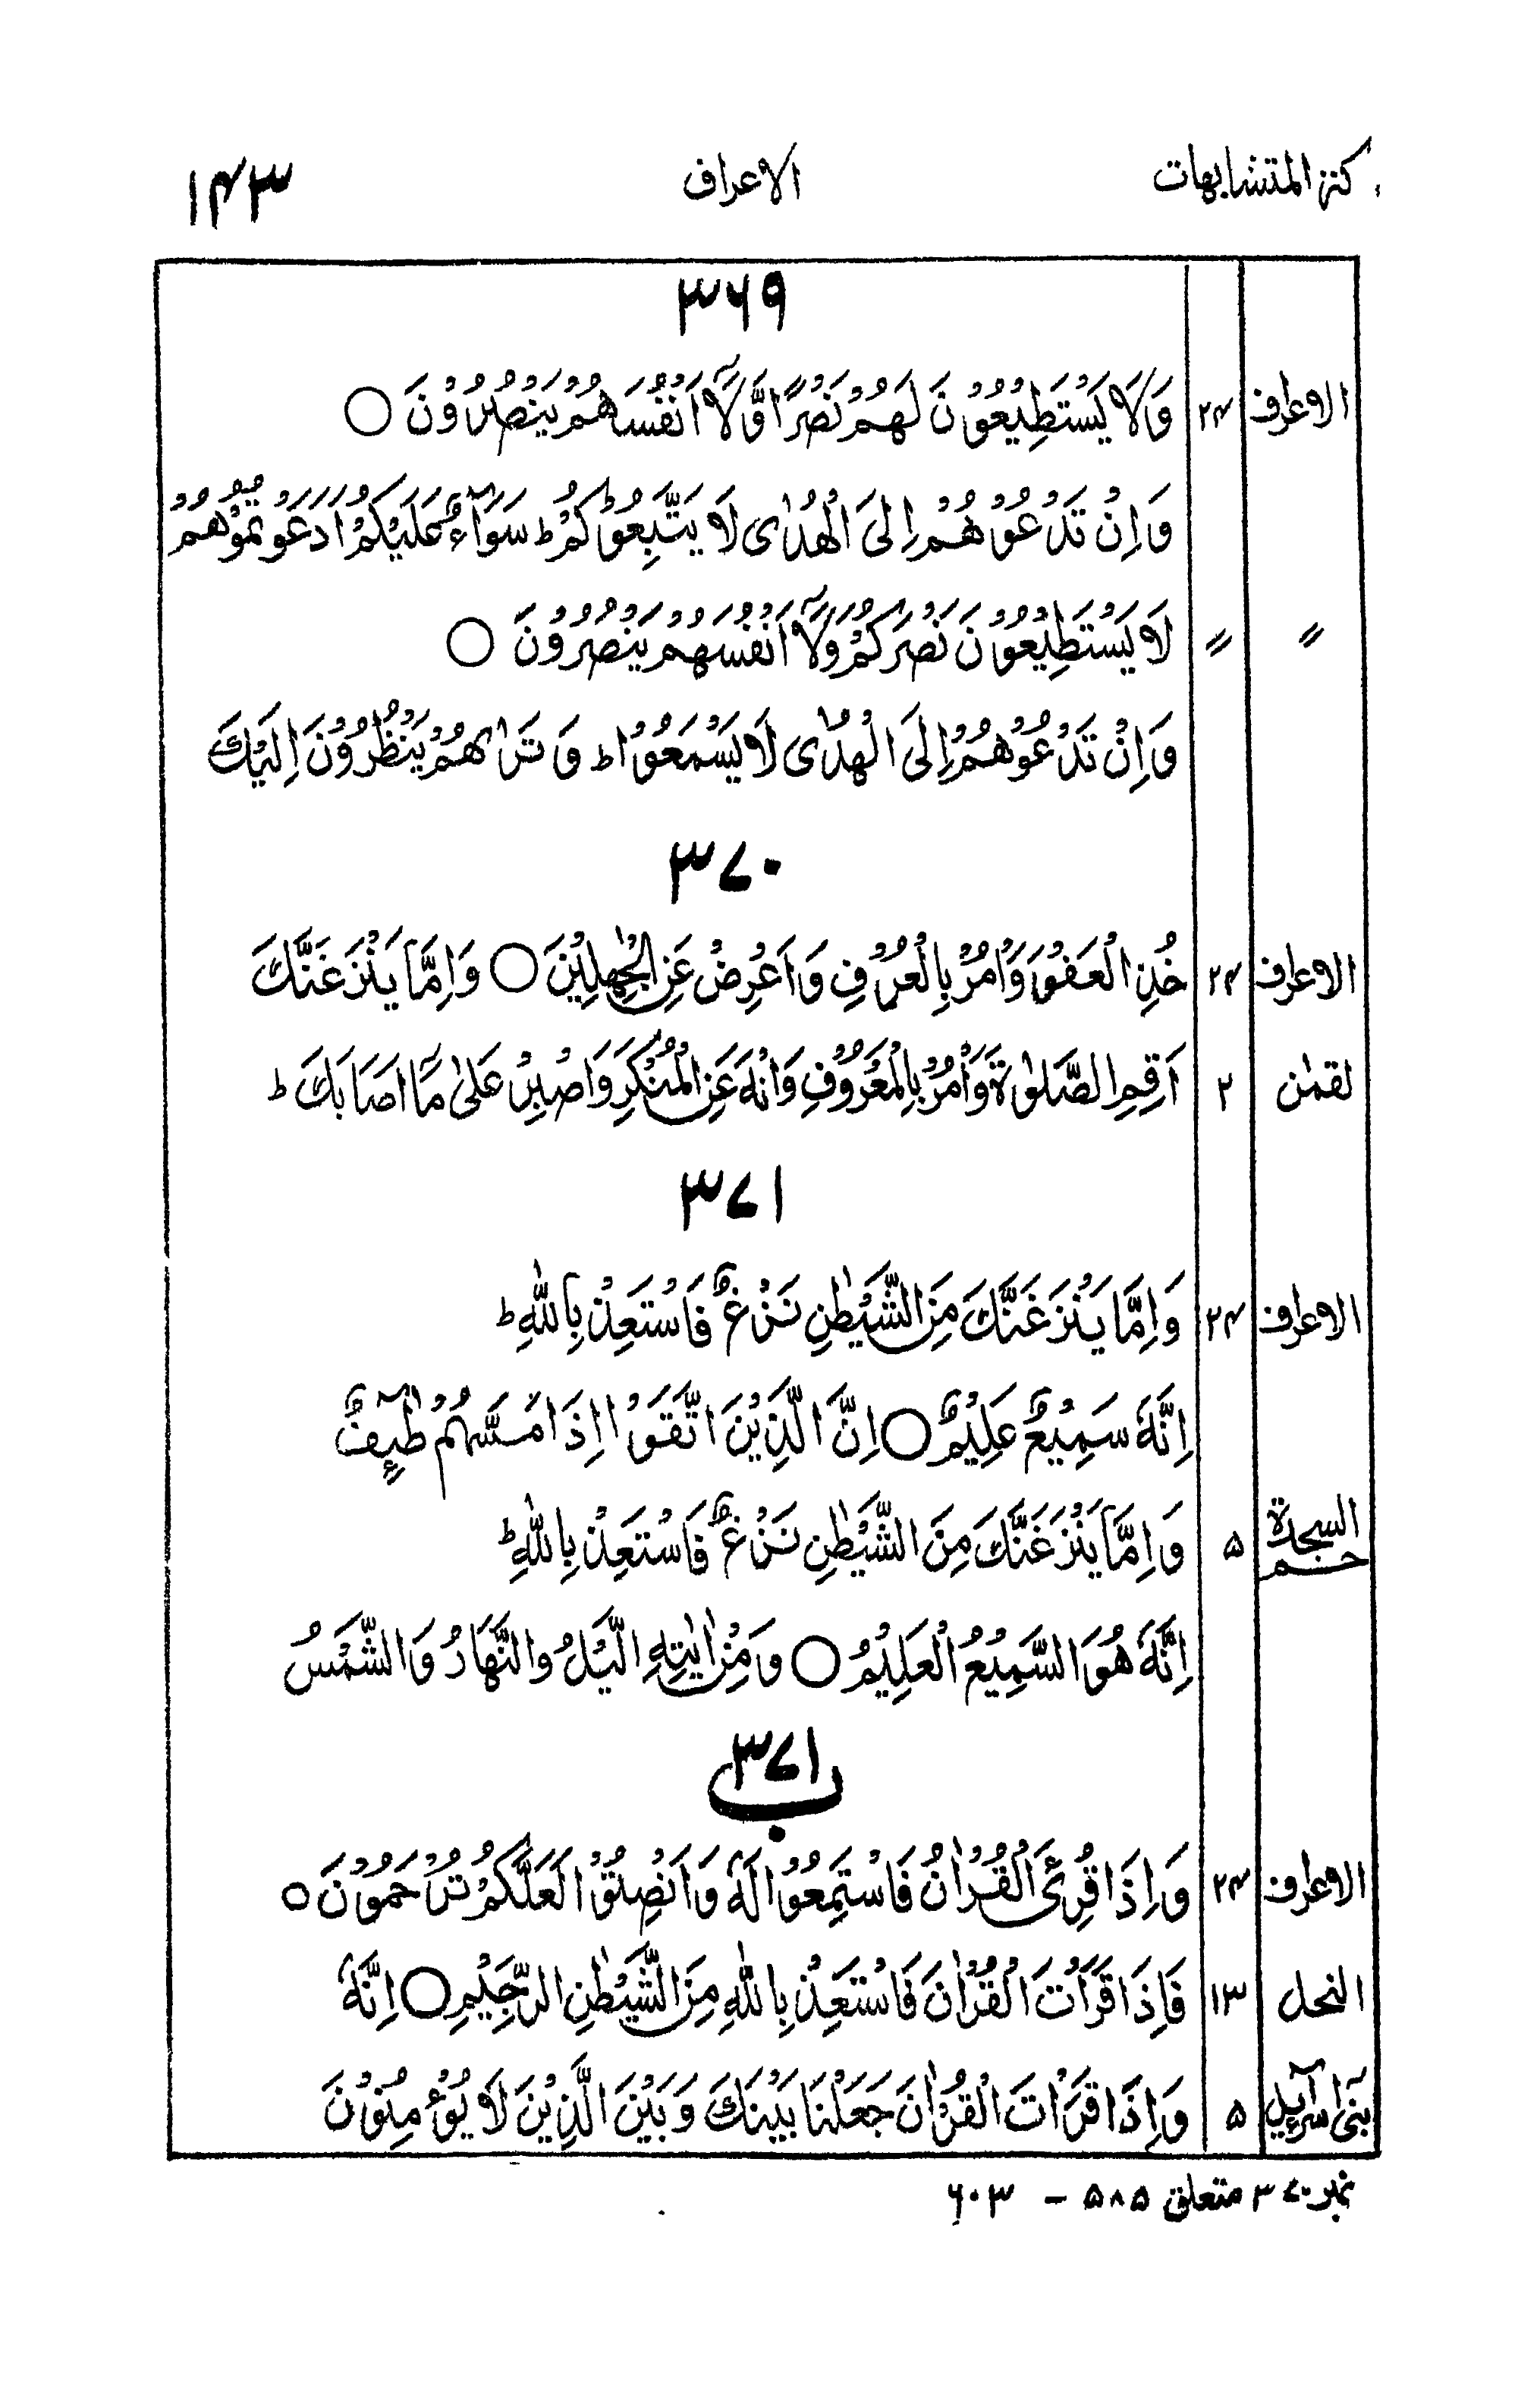 كنز المتشابهات الاعراف ۱۴۳
۳۶۹
الاعراف ۲۴ وَلَا يَسْتَطِيْعُوْنَ لَهُمْ نَصْرًا وَّلَآ اَنْفُسَهُمْ يَنْصُرُوْنَ ○
وَاِنْ تَدْعُوْهُمْ اِلَى الْهُدٰى لَا يَتَّبِعُوْكُمْ ؕ سَوَآءٌ عَلَيْكُمْ اَدَعَوْتُمُوْهُمْ
〃 〃 لَا يَسْتَطِيْعُوْنَ نَصْرَكُمْ وَلَآ اَنْفُسَهُمْ يَنْصُرُوْنَ ○
وَاِنْ تَدْعُوْهُمْ اِلَى الْهُدٰى لَا يَسْمَعُوْا ؕ وَتَرٰىهُمْ يَنْظُرُوْنَ اِلَيْكَ
۳۷۰
الاعراف ۲۴ خُذِ الْعَفْوَ وَاْمُرْ بِالْعُرْفِ وَاَعْرِضْ عَنِ الْجٰهِلِيْنَ ○ وَاِمَّا يَنْزَغَنَّكَ
لقمٰن ۲ اَقِمِ الصَّلٰوةَ وَاْمُرْ بِالْمَعْرُوْفِ وَانْهَ عَنِ الْمُنْكَرِ وَاصْبِرْ عَلٰى مَآ اَصَابَكَ ؕ
۳۷۱
الاعراف ۲۴ وَاِمَّا يَنْزَغَنَّكَ مِنَ الشَّيْطٰنِ نَزْغٌ فَاسْتَعِذْ بِاللّٰهِ ؕ
اِنَّهٗ سَمِيْعٌ عَلِيْمٌ ○ اِنَّ الَّذِيْنَ اتَّقَوْا اِذَا مَسَّهُمْ طٰٓئِفٌ
حٰم السجدة ۵ وَاِمَّا يَنْزَغَنَّكَ مِنَ الشَّيْطٰنِ نَزْغٌ فَاسْتَعِذْ بِاللّٰهِ ؕ
اِنَّهٗ هُوَ السَّمِيْعُ الْعَلِيْمُ ○ وَمِنْ اٰيٰتِهِ الَّيْلُ وَالنَّهَارُ وَالشَّمْسُ
۳۷۱ ب
الاعراف ۲۴ وَاِذَا قُرِئَ الْقُرْاٰنُ فَاسْتَمِعُوْا لَهٗ وَاَنْصِتُوْا لَعَلَّكُمْ تُرْحَمُوْنَ ○
النحل ۱۳ فَاِذَا قَرَاْتَ الْقُرْاٰنَ فَاسْتَعِذْ بِاللّٰهِ مِنَ الشَّيْطٰنِ الرَّجِيْمِ ○ اِنَّهٗ
بنی اسرآءيل ۵ وَاِذَا قَرَاْتَ الْقُرْاٰنَ جَعَلْنَا بَيْنَكَ وَبَيْنَ الَّذِيْنَ لَا يُؤْمِنُوْنَ
نمبر ۳۷۰ متعلق ۵۸۵ - ۶۰۳